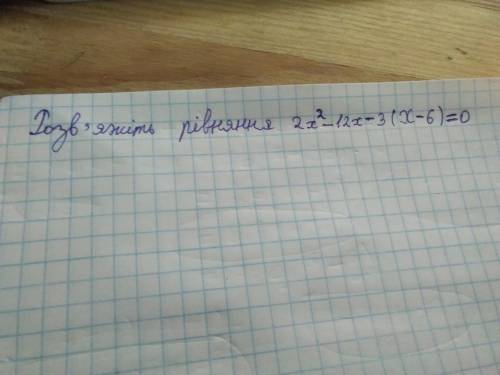 Розв'яжіть рівняння 2x²-12x-3(x-6)=0